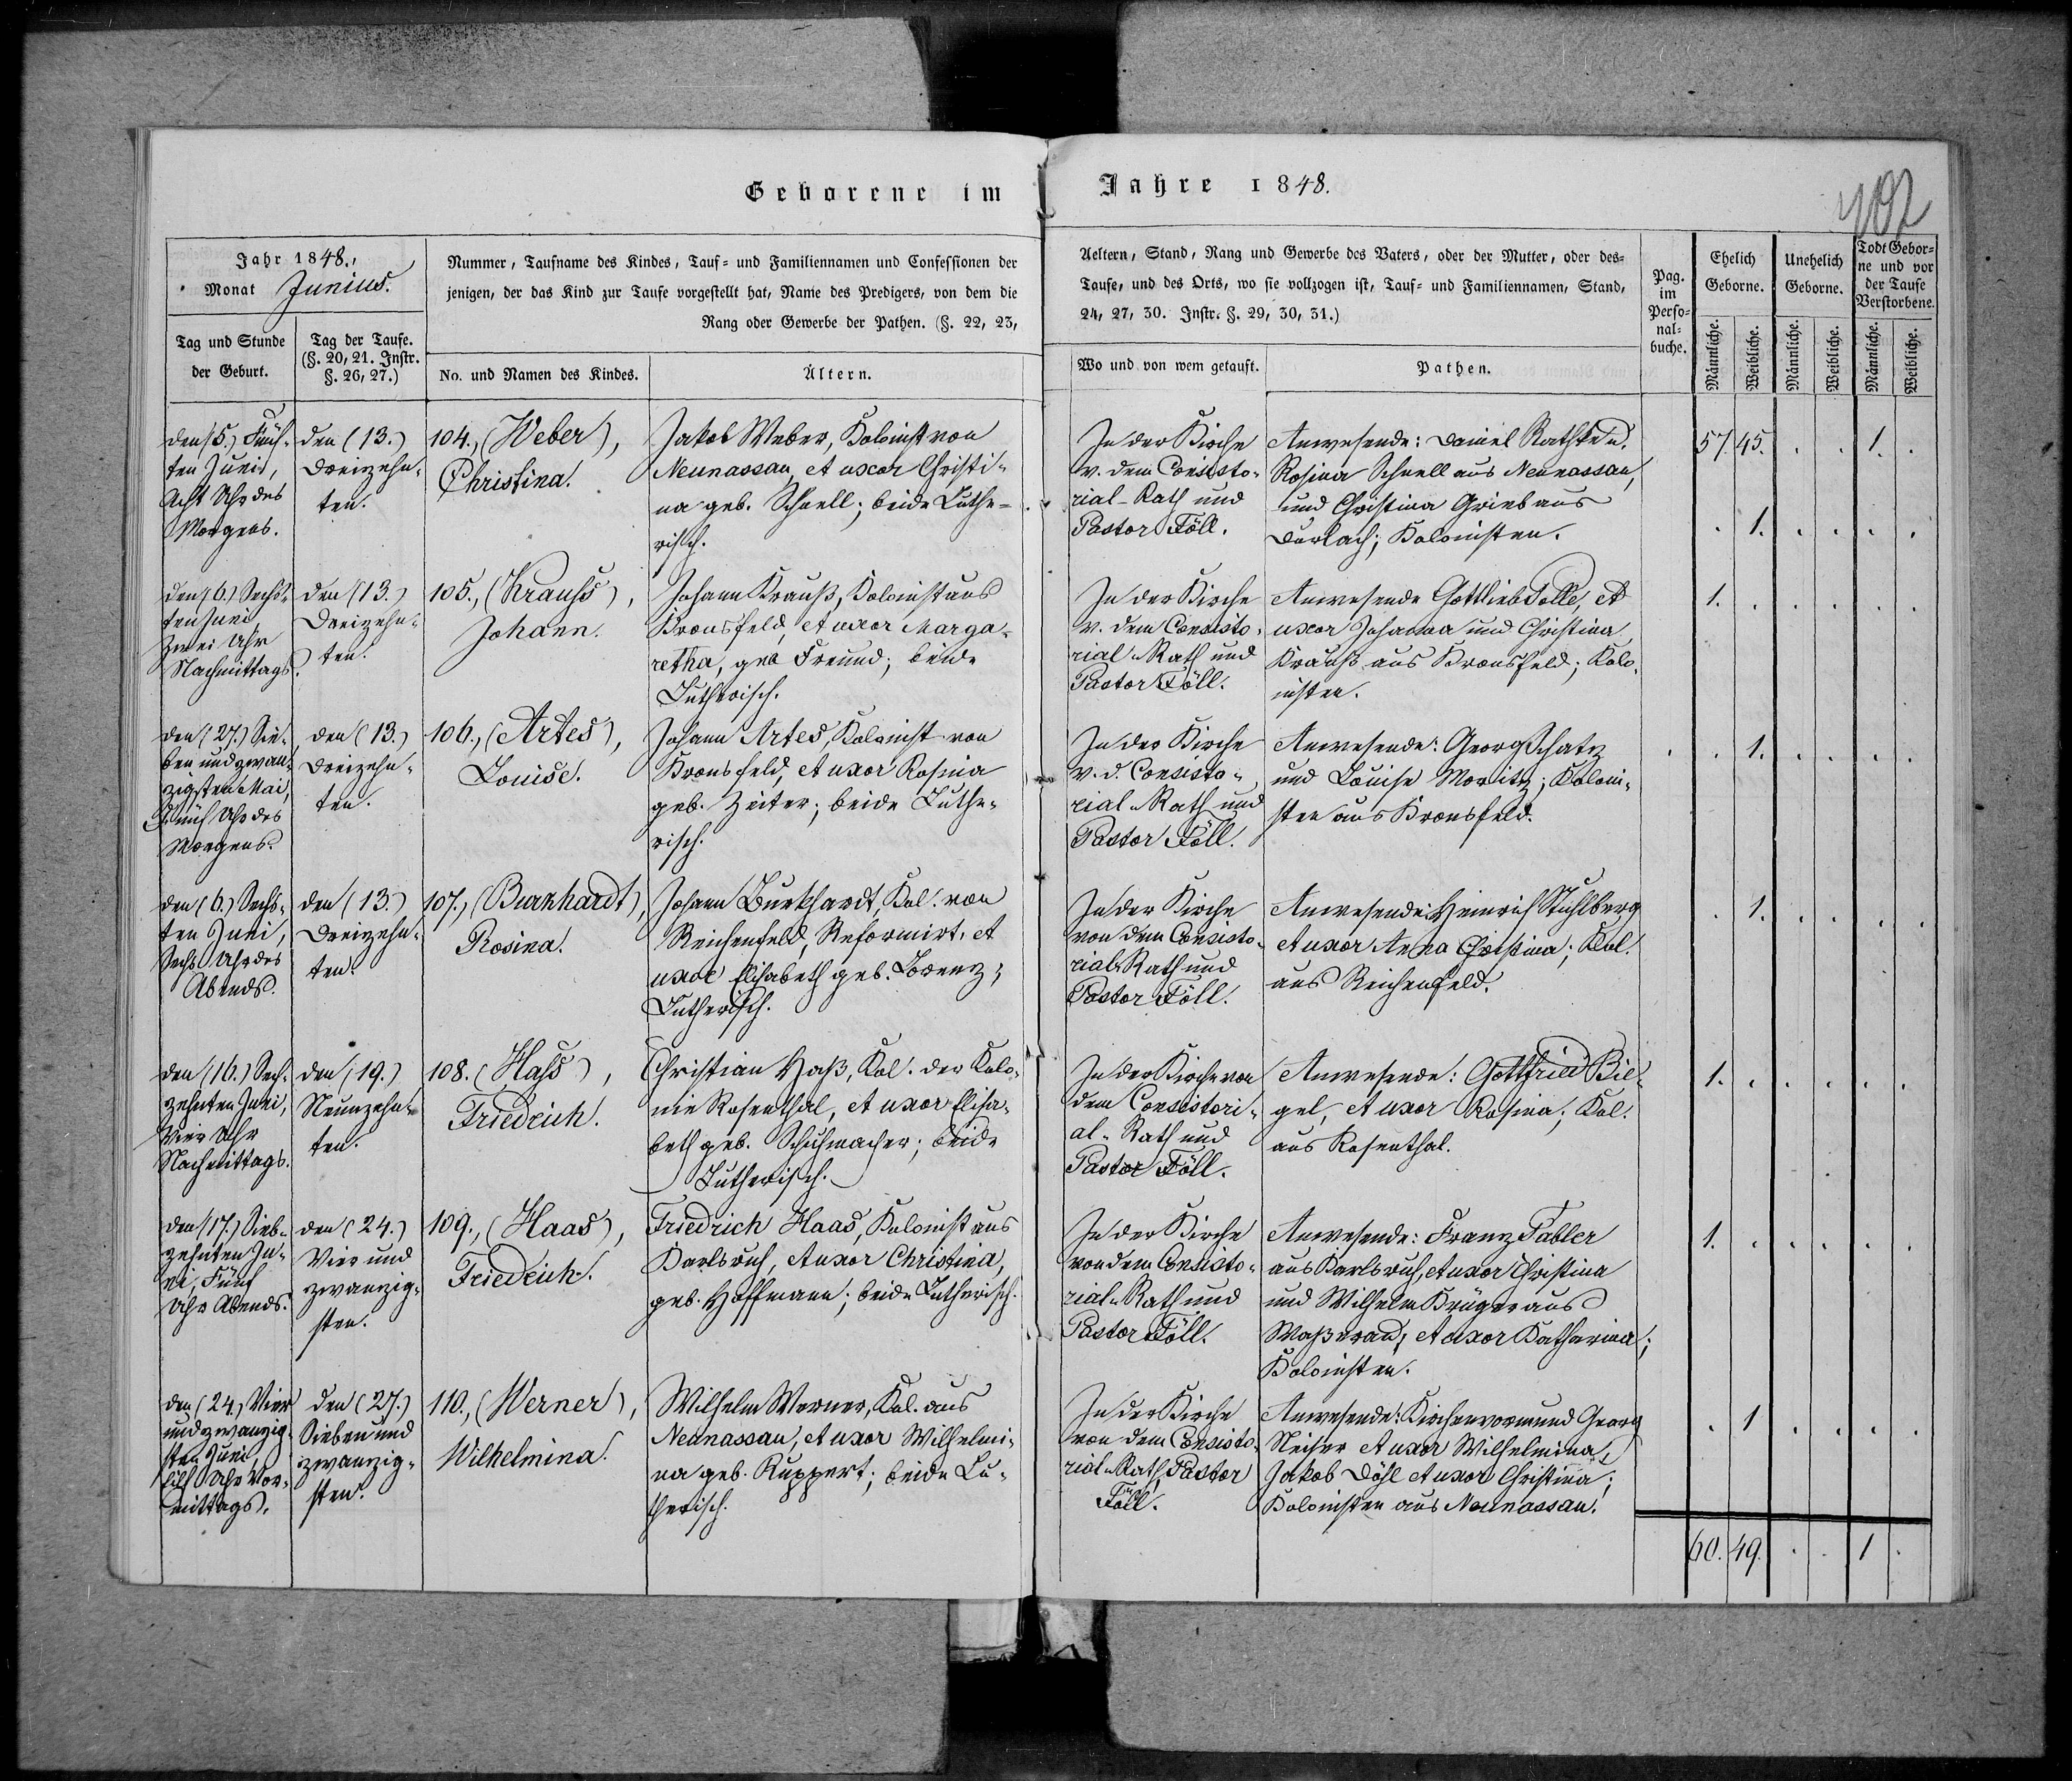 Geborene im Jahre 1848.
402
Jahr 1848.,
Monat Junius.
Nummer, Taufname des Kindes, Tauf- und Familiennamen und Confessionen der
jenigen, der das Kind zur Taufe vorgestellt hat, Name des Predigers, von dem die
Rang oder Gewerbe der Pathen. (§. 22, 23,
Aeltern, Stand, Rang und Gewerbe des Vaters, oder der Mutter, oder des-
Taufe, und des Orts, wo sie vollzogen ist, Tauf- und Familiennamen, Stand,
24, 27, 30. Instr. §. 29, 30, 31.)
Pag.
im
Perso-
nal-
buche.
Ehelich
Geborne.
Unehelich
Geborne.
Todt Gebor-
ne und vor
der Taufe
Verstorbene.
Männliche.
Weibliche.
Männliche.
Weibliche.
Männliche.
Weibliche.
Tag und Stunde
der Geburt.
Tag der Taufe.
(§. 20, 21. Instr.
§. 26, 27.)
No. und Namen des Kindes.
Ältern.
Wo und von wem getauft.
Pathen.
den (5.) Fünf-
ten Juni,
Acht Uhr des
Morgens.
den (13.)
Dreizehn-
ten.
104., (Weber),
Christina.
Jakob Weber, Kolonist von
Neunassau, et uxor Christi-
na geb. Schnell; beide Luthe-
risch.
In der Kirche
v. dem Consisto-
rial-Rath und
Pastor Föll.
Anwesende: Daniel Rathke u.
Rosina Schnell aus Neunassau,
und Christina Grieb aus
Durlach; Kolonisten.
57. 45. . . 1. .
. 1. . . . .
den (6.) Sechs-
ten Juni,
Zwei Uhr
Nachmittags.
den (13.)
Dreizehn-
ten.
105., (Krauß),
Johann.
Johann Krauß, Kolonist aus
Kronsfeld, et uxor Marga-
retha, geb Freund; beide
Lutherisch.
In der Kirche
v. dem Consisto-
rial-Rath und
Pastor Föll.
Anwesende Gottlieb Tolle, et
uxor Johanna und Christina
Krauß aus Kronsfeld; Kolo-
nisten.
1. . . . . .
den (27.) Sie-
ben und zwan-
zigsten Mai,
Fünf Uhr des
Morgens.
den (13.)
Dreizehn-
ten.
106., (Artes),
Louise.
Johann Artes, Kolonist von
Kronsfeld, et uxor Rosina
geb. Zeiter; beide Luthe-
risch.
In der Kirche
v. d. Consisto-
rial-Rath und
Pastor Föll.
Anwesende: Georg Schatz
und Louise Moritz; Koloni-
sten aus Kronsfeld.
. 1. . . . .
den (6.) Sechs-
ten Juni,
Sechs Uhr des
Abends.
den (13.)
Dreizehn-
ten.
107., (Burkhardt),
Rosina.
Johann Burkhardt, Kol. von
Reichenfeld, Reformirt, et
uxor Elisabeth geb. Lorenz;
Lutherisch.
In der Kirche
von dem Consisto-
rial-Rath und
Pastor Föll.
Anwesende: Heinrich Stuhlberg
et uxor Anna Christina; Kol.
aus Reichenfeld.
. 1. . . . .
den (16.) Sech-
zehnten Juni,
Vier Uhr
Nachmittags.
den (19.)
Neunzehn-
ten.
108. (Haß),
Friedrich.
Christian Haß, Kol. der Kolo-
nie Rosenthal, et uxor Elisa-
beth geb. Schuhmacher; beide
Lutherisch.
In der Kirche von
dem Consistori-
al-Rath und
Pastor Föll.
Anwesende: Gottfried Bie-
gel, et uxor Rosina; Kol.
aus Rosenthal.
1. . . . . .
den (17.) Sieb-
zehnten Ju-
ni, Fünf
Uhr Abends.
den (24.)
Vier und
zwanzig-
sten.
109., (Haas),
Friedrich.
Friedrich Haas, Kolonist aus
Karlsruh, et uxor Christina,
geb. Hoffmann; beide Lutherisch.
In der Kirche
von dem Consisto-
rial-Rath und
Pastor Föll.
Anwesende: Franz Tabler
aus Karlsruh, et uxor Christina
und Wilhelm Krüger aus
Waßerau, et uxor Katharina;
Kolonisten.
1. . . . . .
den (24.) Vier
und zwanzig-
sten Juni,
Eilf Uhr Vor-
mittags.
den (27.)
Sieben und
zwanzig-
sten.
110., (Werner),
Wilhelmina.
Wilhelm Werner, Kol. aus
Neunassau, et uxor Wilhelmi-
na geb. Ruppert; beide Lu-
therisch.
In der Kirche
von dem Consisto-
rial-Rath, Pastor
Föll.
Anwesende: Kirchenvormund Georg
Neiser et uxor Wilhelmina,
Jakob Döhl et uxor Christina;
Kolonisten aus Neunassau.
. 1 . . . .
60. 49. . . 1 .